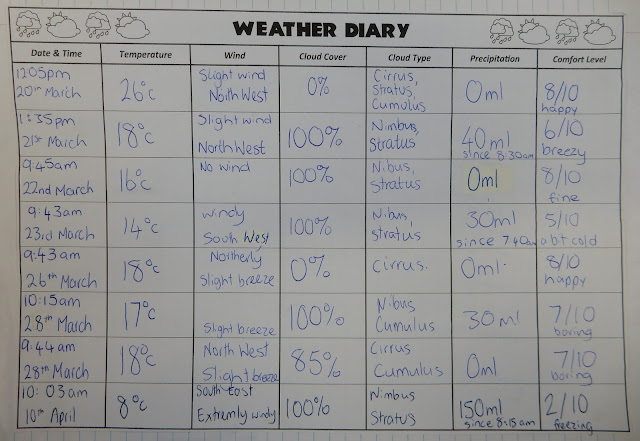 WEATHER DIARY
Date & Time Temperature Wind Cloud Cover Cloud Type Precipitation Comfort Level
12:05pm
20th March
26°c
Slight wind
North West
0%
Cirrus,
Stratus,
Cumulus
0ml
8/10
happy
1:35pm
21st March
18°c
Slight wind
North West
100%
Nimbus,
Stratus
40ml
since 8:30am
6/10
breezy
9:45am
22nd March
16°c
No wind
100%
Nibus,
Stratus
0ml
8/10
fine
9:43am
23rd March
14°c
windy
South West
100%
Nibus,
Stratus
30ml
since 740am
5/10
a bt cold
9:43am
26th March
18°c
Northerly
Slight breeze
0%
Cirrus.
0ml
8/10
happy
10:15am
28th March
17°c
Slight breeze
100%
Nibus
Cumulus
30ml
7/10
boring
9:44am
28th March
18°c
North West
Slight breeze
85%
Cirrus
Cumulus
0ml
7/10
boring
10:03am
10th April
8°c
South-East
Extremly windy
100%
Nimbus
Stratus
150ml
since 8:15am
2/10
freezing